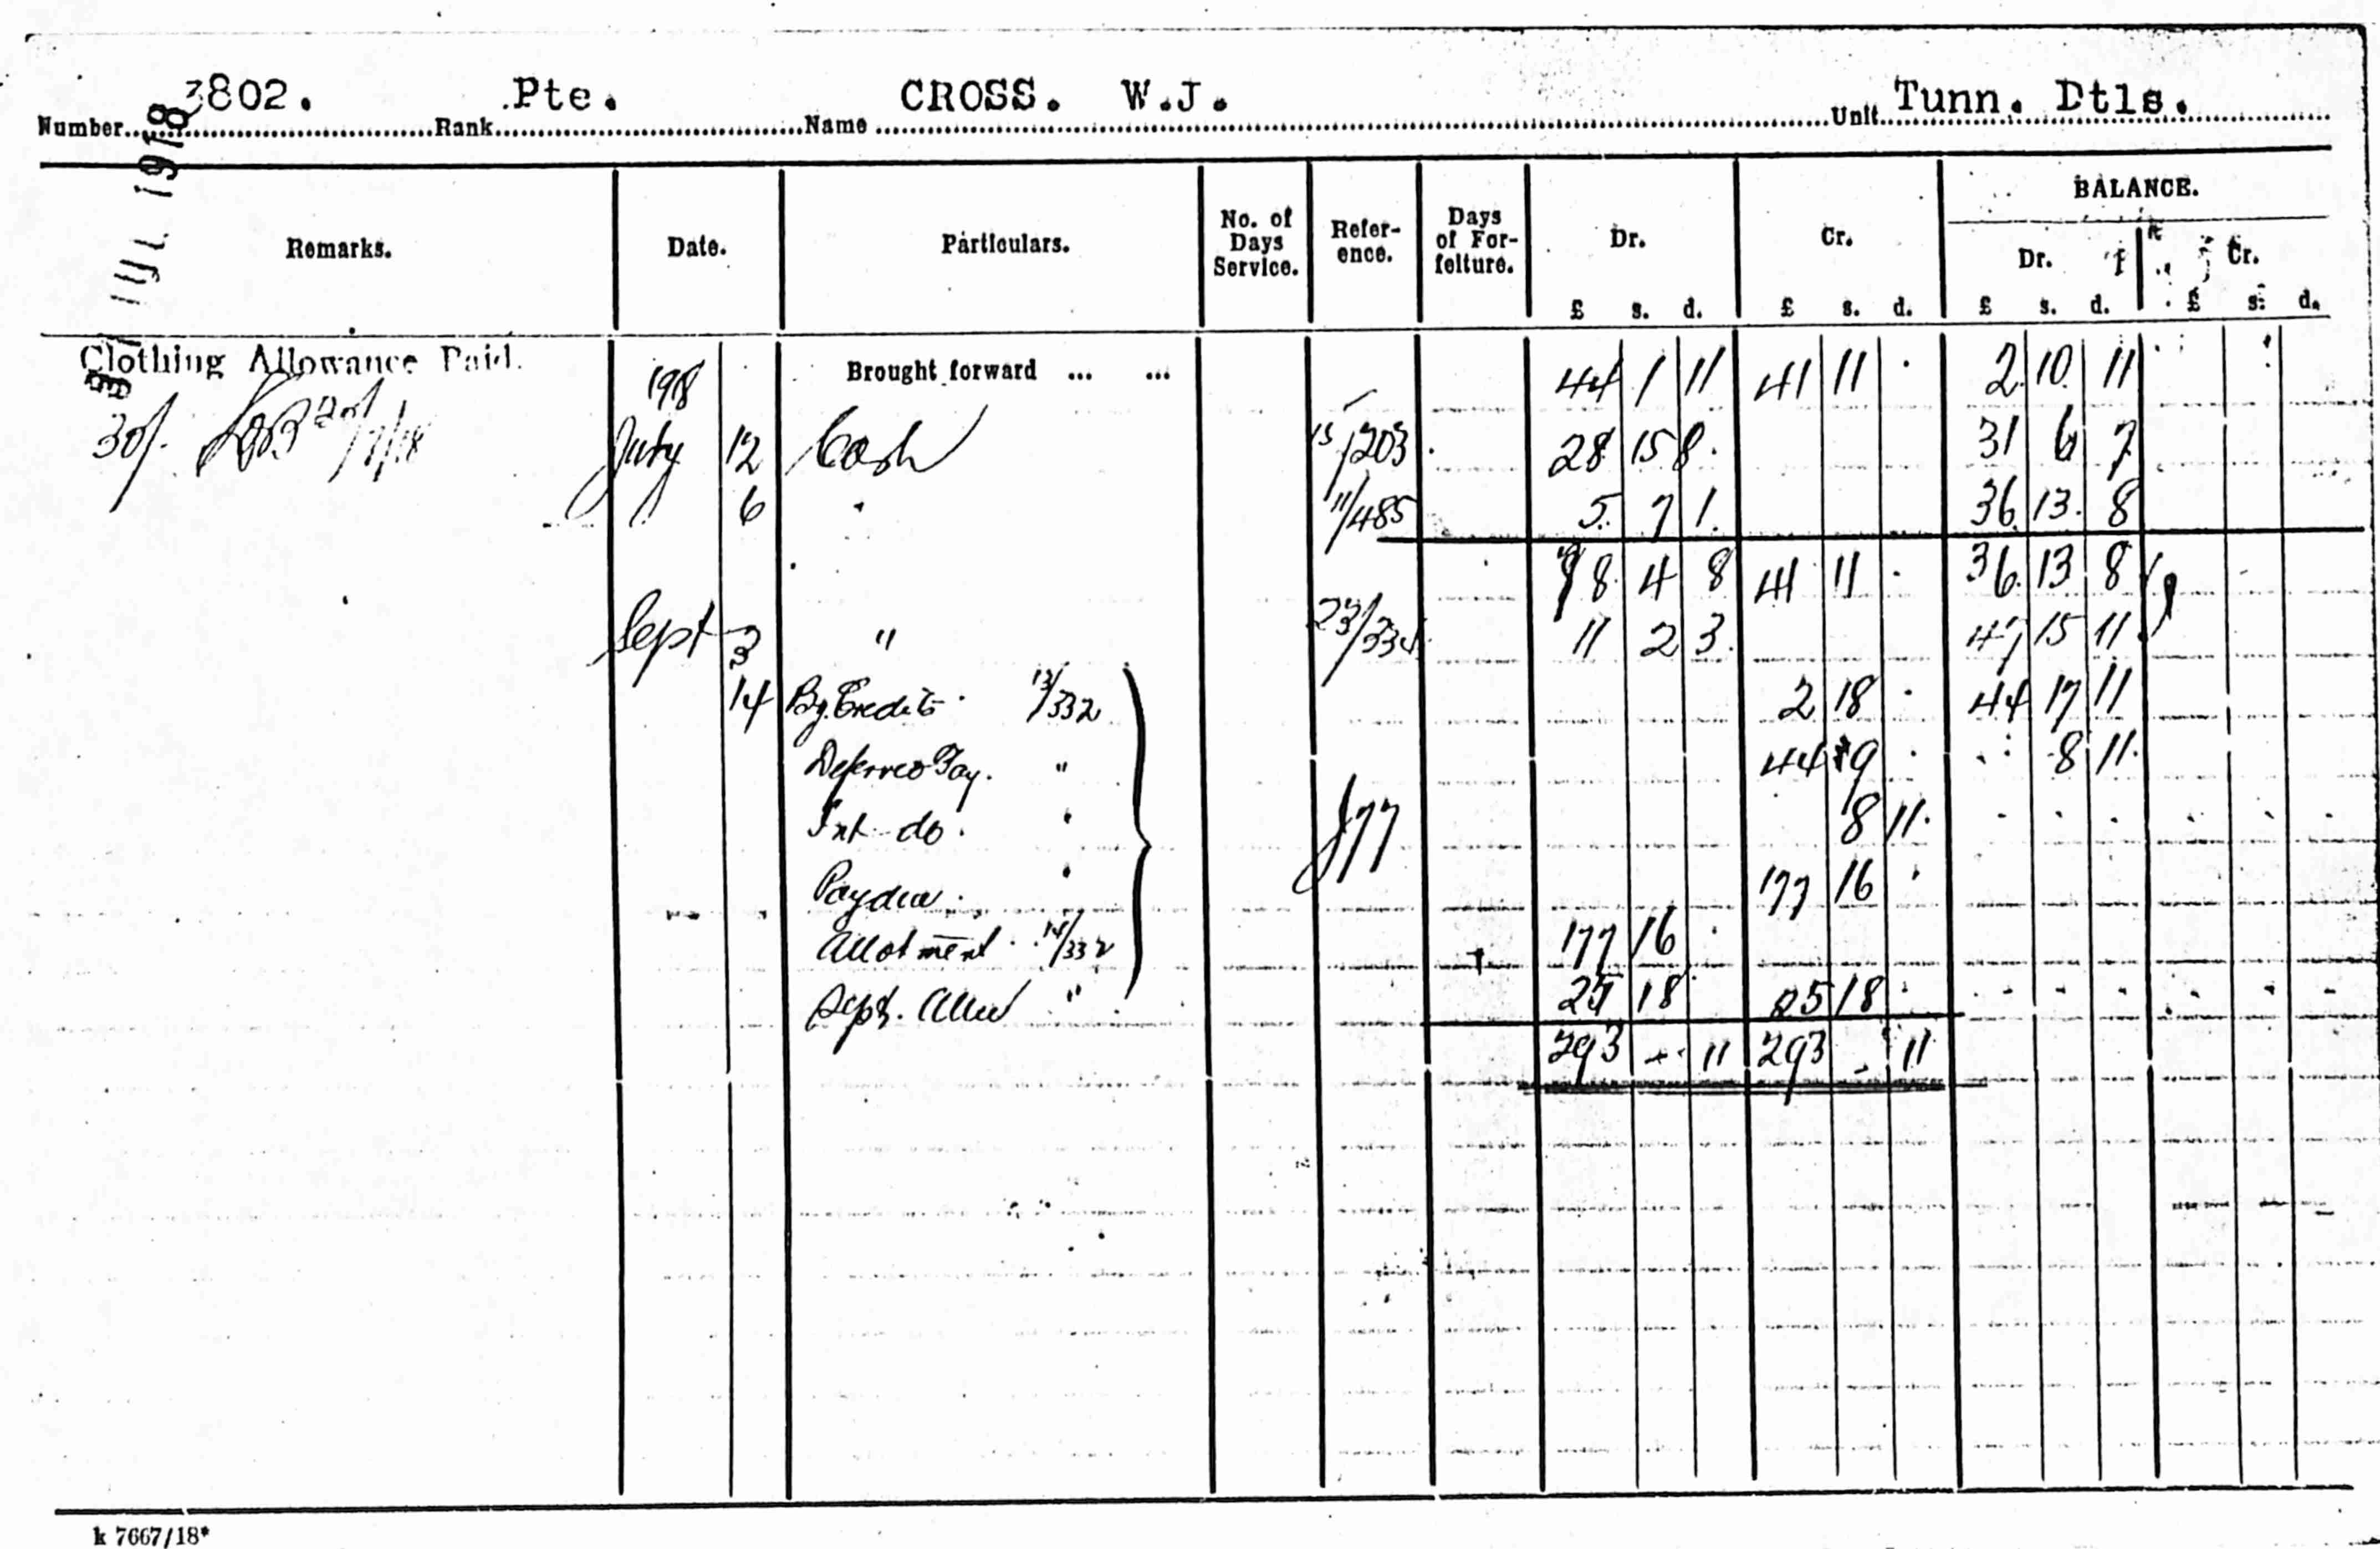 3802. Pte. CROSS. W.J. Tunn. Dtls.
Number Rank Name Unit
JUL 1918
BALANCE.
Remarks. Date. Particulars. No. of Days Service. Refer-ence. Days of For-feiture. Dr. Cr. Dr. Cr.
£ s. d. £ s. d. £ s. d. £ s. d.
Clothing Allowance Paid. 1918 Brought forward ... ... 44 1 11 41 11 · 2 10 11
30/- July 12 Cash 15/203 28 15 8 31 6 7
6 " 11/485 5 7 1 36 13 8
78 4 8 41 11 · 36 13 8
Sept 3 " 11 2 3 47 15 11
14 By Credits 13/332 2 18 · 44 17 11
Deferred Pay. " 44 9 · 8 11
Int do. " 8 11
Pay due. " 177 16 ·
Allotment 14/332 177 16 ·
Sept. " 25 18 25 18
293 - 11 293 - 11
k 7667/18*